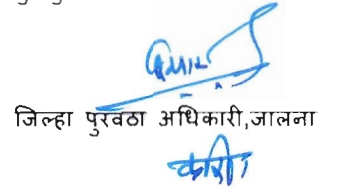 जिल्हा पुरवठा अधिकारी,जालना
करीता